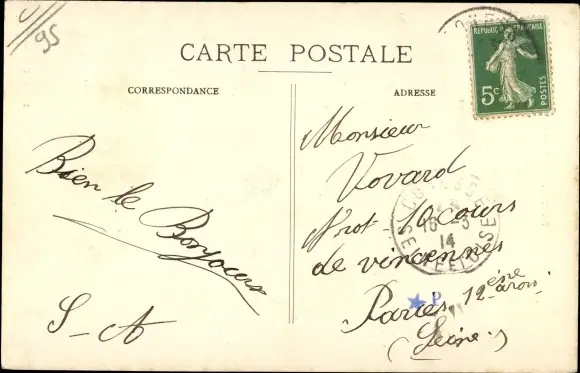 95
CARTE POSTALE
CORRESPONDANCE
ADRESSE
REPUBLIQUE FRANÇAISE
5c
POSTES
Bien le Bonjour
S-A
Monsieur
Vovard
10 cours
de vincennes
Paris 12ème arois.
(Seine.)
16 -3
14
SEINE
★ P.